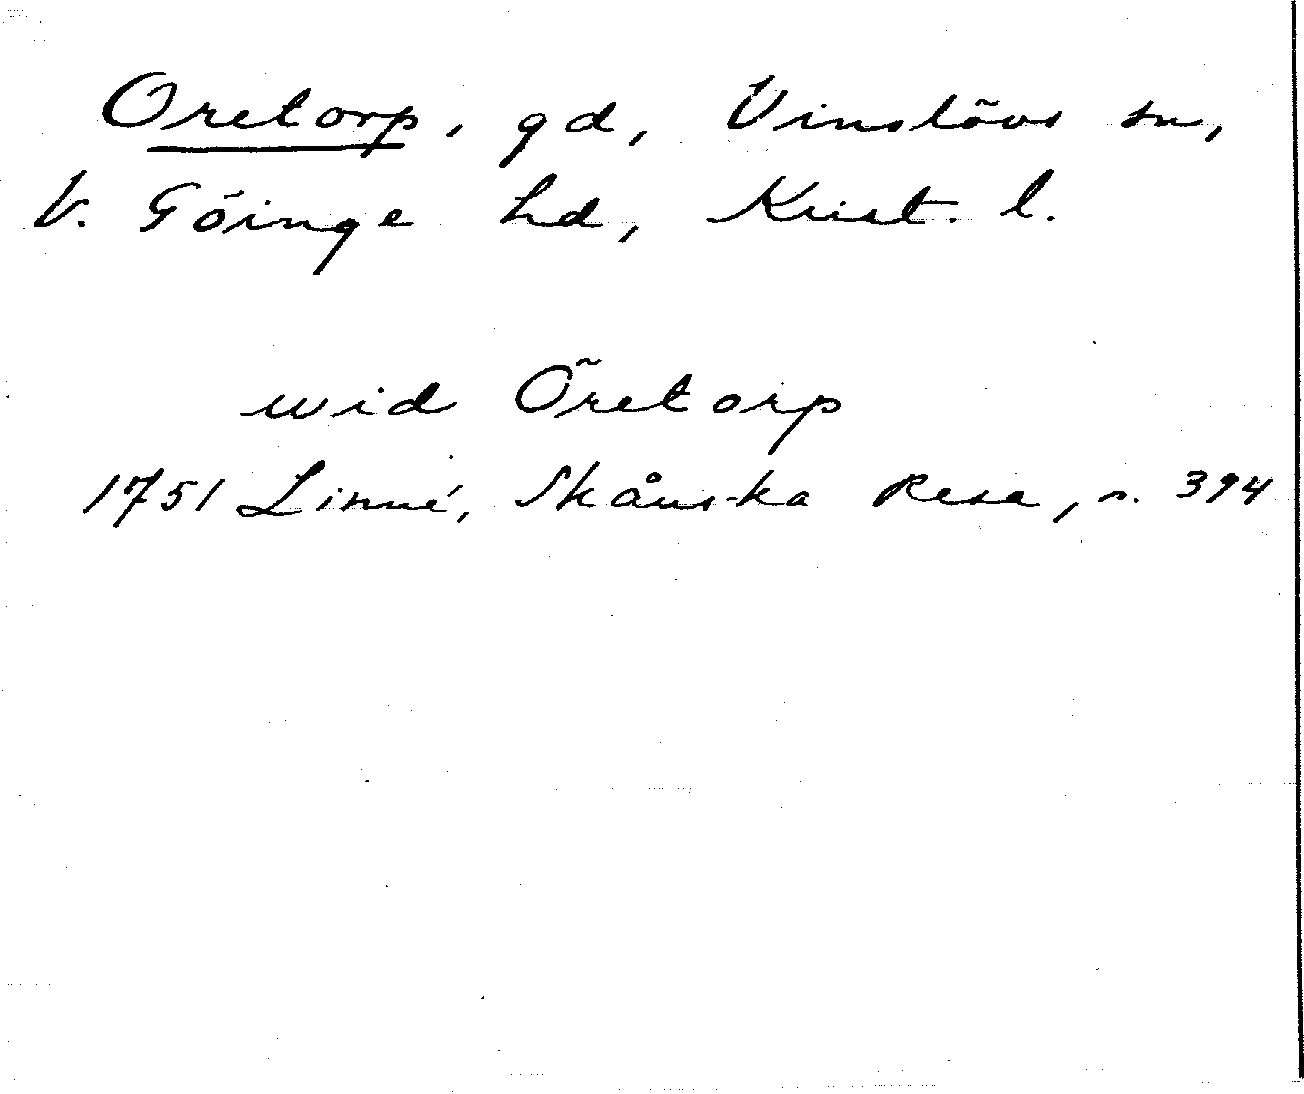 Oretorp, gd, Vinslövs sn,
V. Göinge hd, Krist. l.
wid Öretorp
1751 Linné, Skånska Resa, s. 394